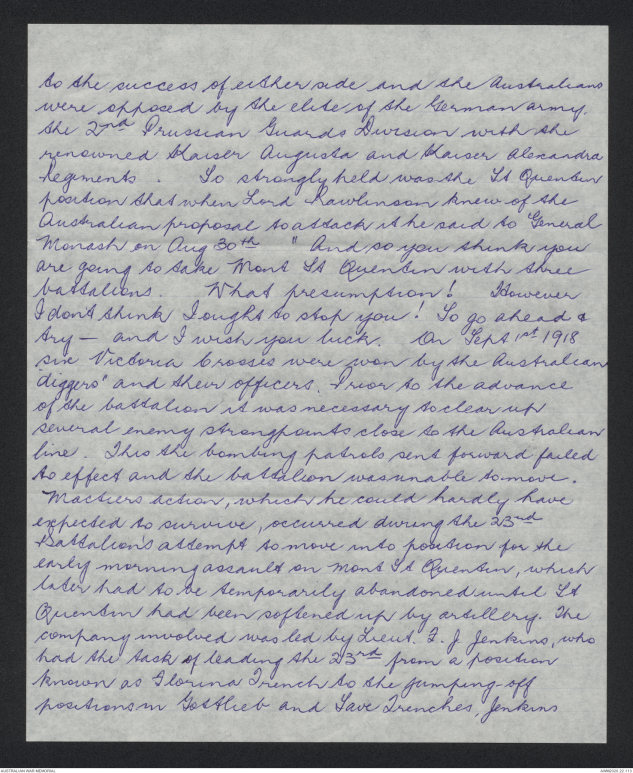 to the success of either side and the Australians
were opposed by the elite of the German army.
the 2nd Prussian Guards Division with the
renowned Kaiser Augusta and Kaiser Alexandra
Regiments . So strongly held was the St Quentin
position that when Lord Rawlinson knew of the
Australian proposal to attack it he said to General
Monash on Aug 30th " And so you think you
are going to take Mont St Quentin with three
battalions. What presumption! However
I don't think I ought to stop you! So go ahead &
try — and I wish you luck. On Sept 1st 1918
six Victoria Crosses were won by the Australian
diggers" and their officers. Prior to the advance
of the battalion it was necessary to clear up
several enemy strongpoints close to the Australian
line. This the bombing patrols sent forward failed
to effect and the battalion was unable to move.
Mactiers action, which he could hardly have
expected to survive, occurred during the 23rd
Battalion's attempt to move into position for the
early morning assault on Mont St Quentin, which
later had to be temporarily abandoned until St
Quentin had been softened up by artillery. The
company involved was led by Lieut. F. J Jenkins, who
had the task of leading the 23rd from a position
known as Florina Trench to the jumping-off
positions in Gottlieb and Save Trenches, Jenkins
AUSTRALIAN WAR MEMORIAL